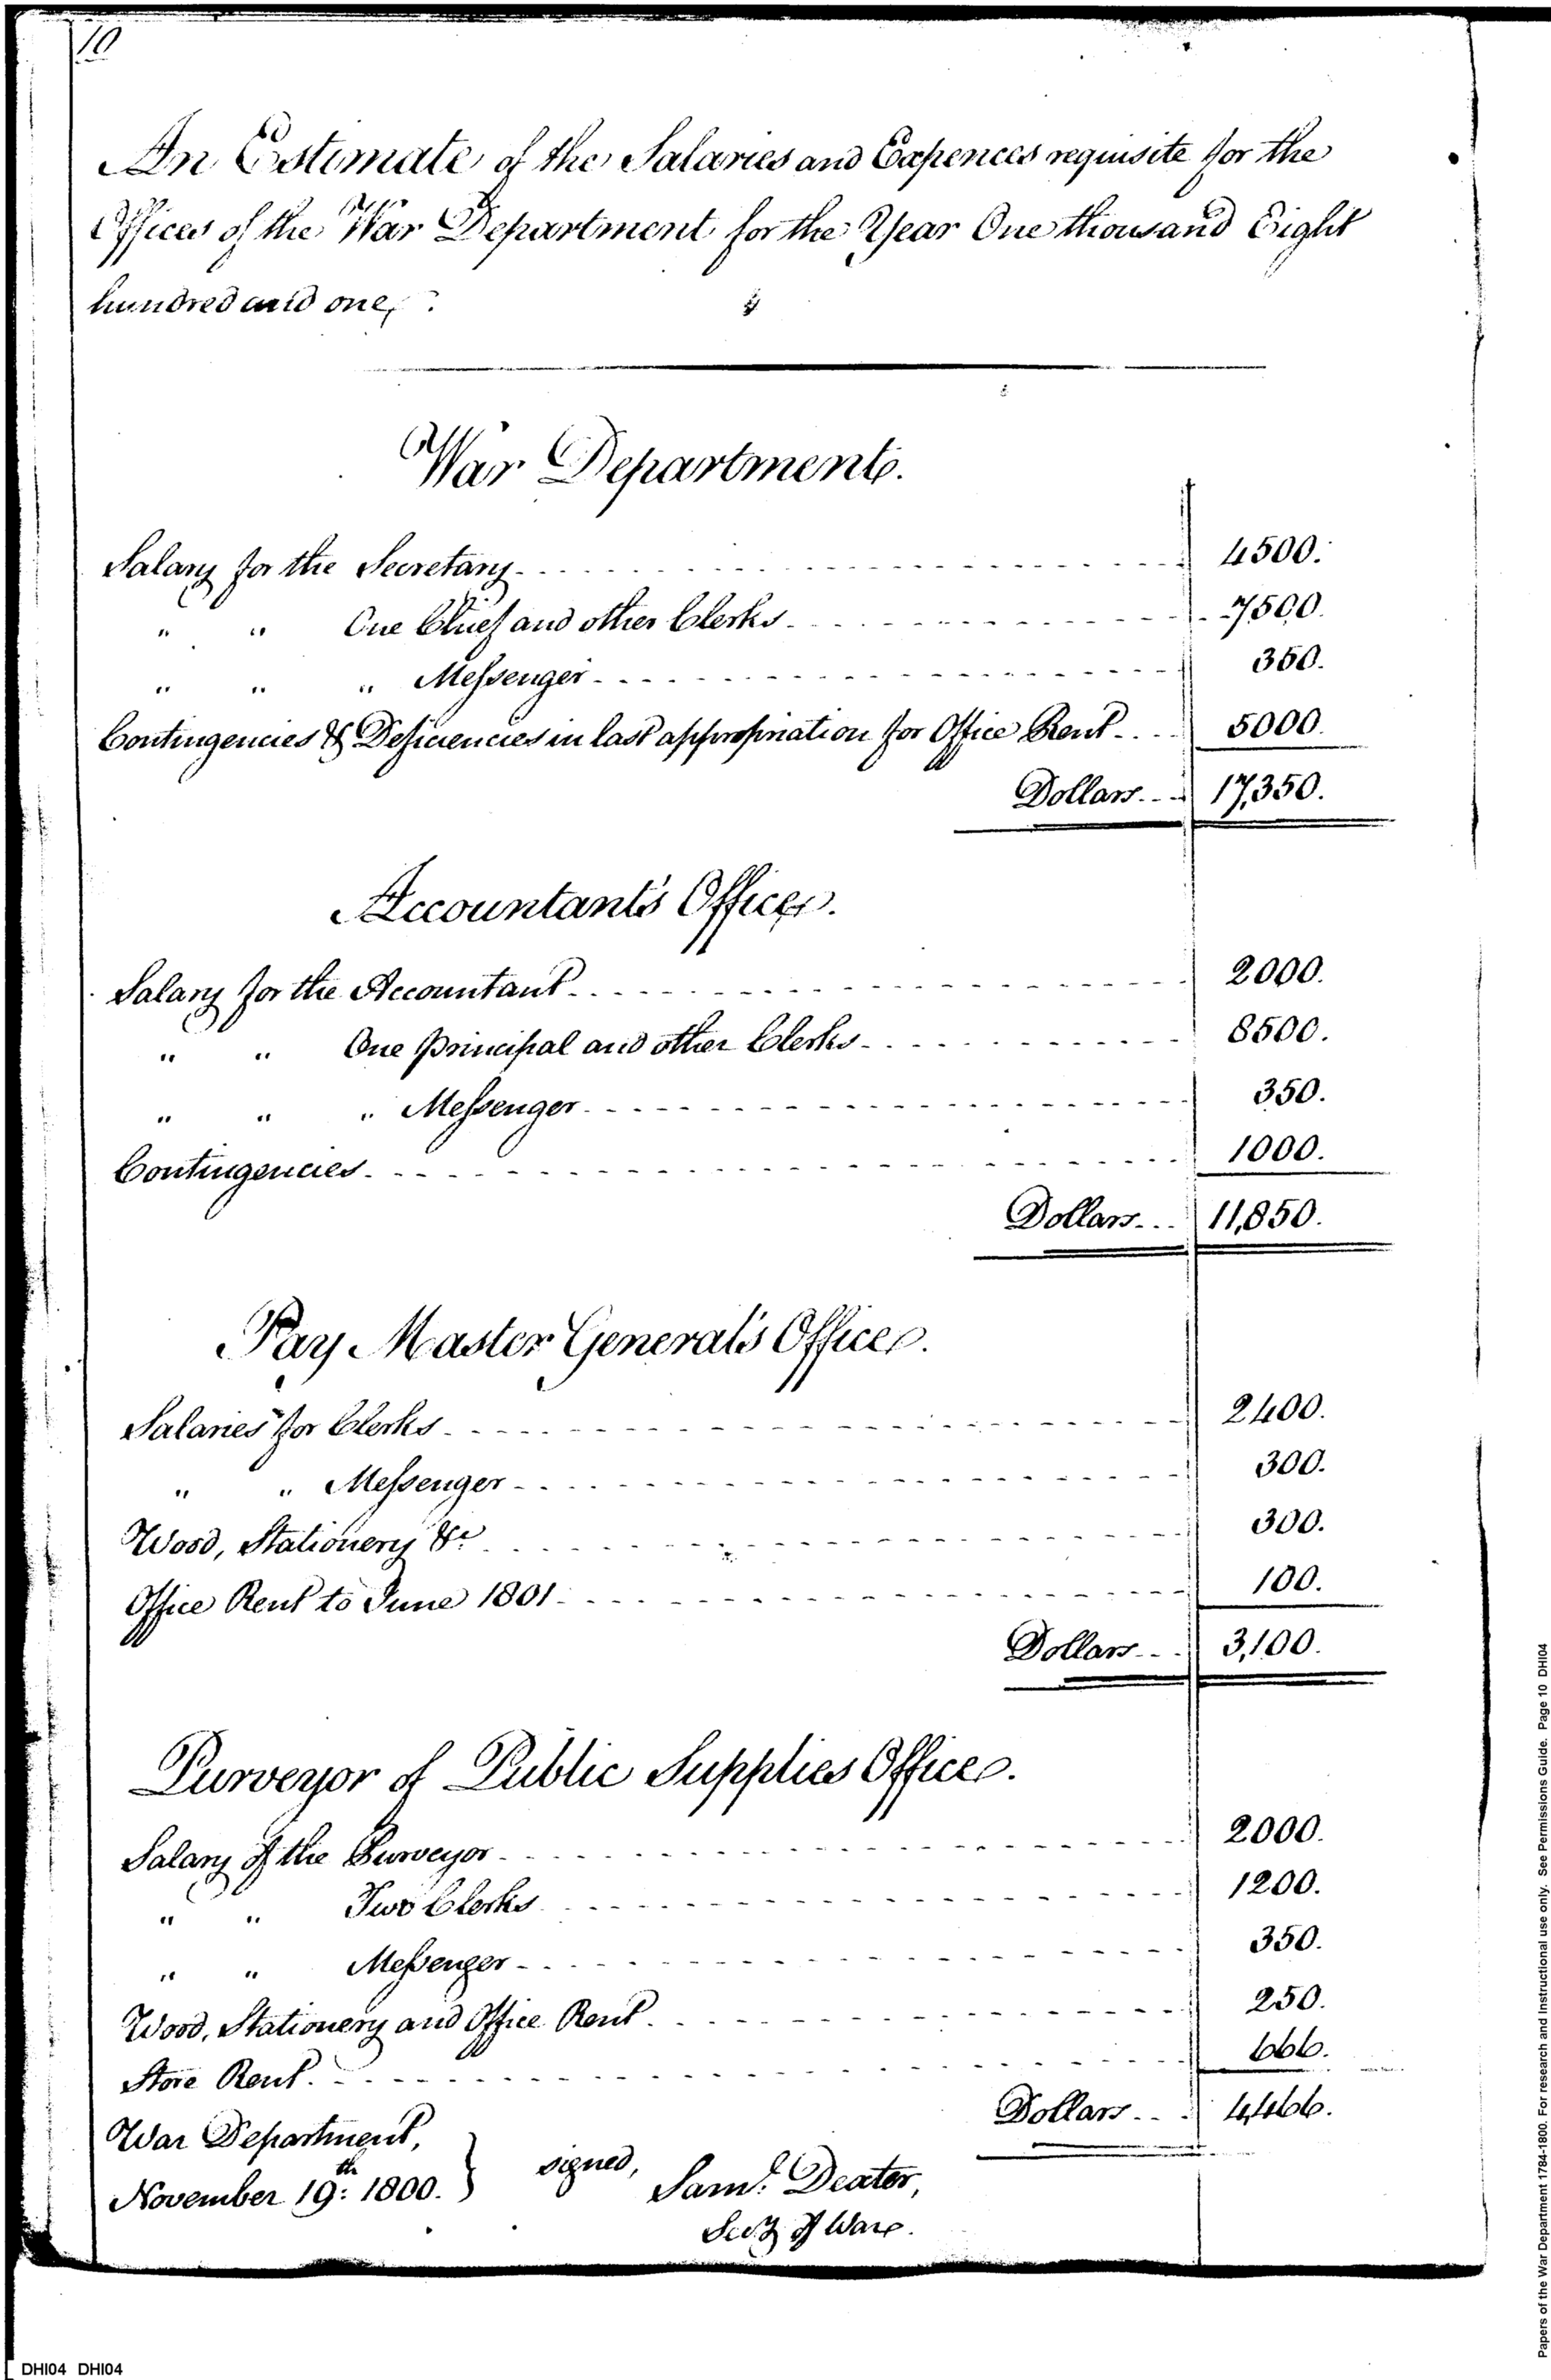 10
An Estimate of the Salaries and Expences requisite for the
Offices of the War Department for the Year One thousand Eight
hundred and one,
War Department.
Salary for the Secretary 4500.
" " One Chief and other Clerks 7500.
" " " Messenger 350.
Contingencies & Deficiencies in last appropriation for Office Rent 5000.
Dollars 17,350.
Accountant's Office.
Salary for the Accountant 2000.
" " One Principal and other Clerks 8500.
" " " Messenger 350.
Contingencies 1000.
Dollars 11,850.
Pay Master General's Office.
Salaries for Clerks 2400.
" " Messenger 300.
Wood, Stationery &c 300.
Office Rent to June 1801 100.
Dollars 3,100.
Purveyor of Public Supplies Office.
Salary of the Purveyor 2000.
" " Two Clerks 1200.
" " Messenger 350.
Wood, Stationery and Office Rent 250.
Store Rent 666.
Dollars 4,466.
War Department,
November 19th: 1800. } signed, Saml. Dexter,
Secy of War.
Papers of the War Department 1784-1800. For research and Instructional use only. See Permissions Guide. Page 10 DHI04
DHI04 DHI04